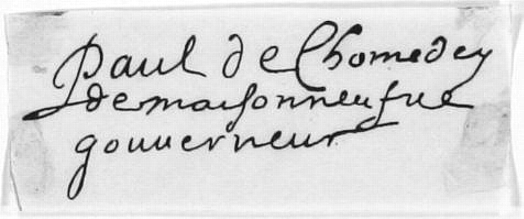 Paul de Chomedey
demaisonneufve
gouuerneur